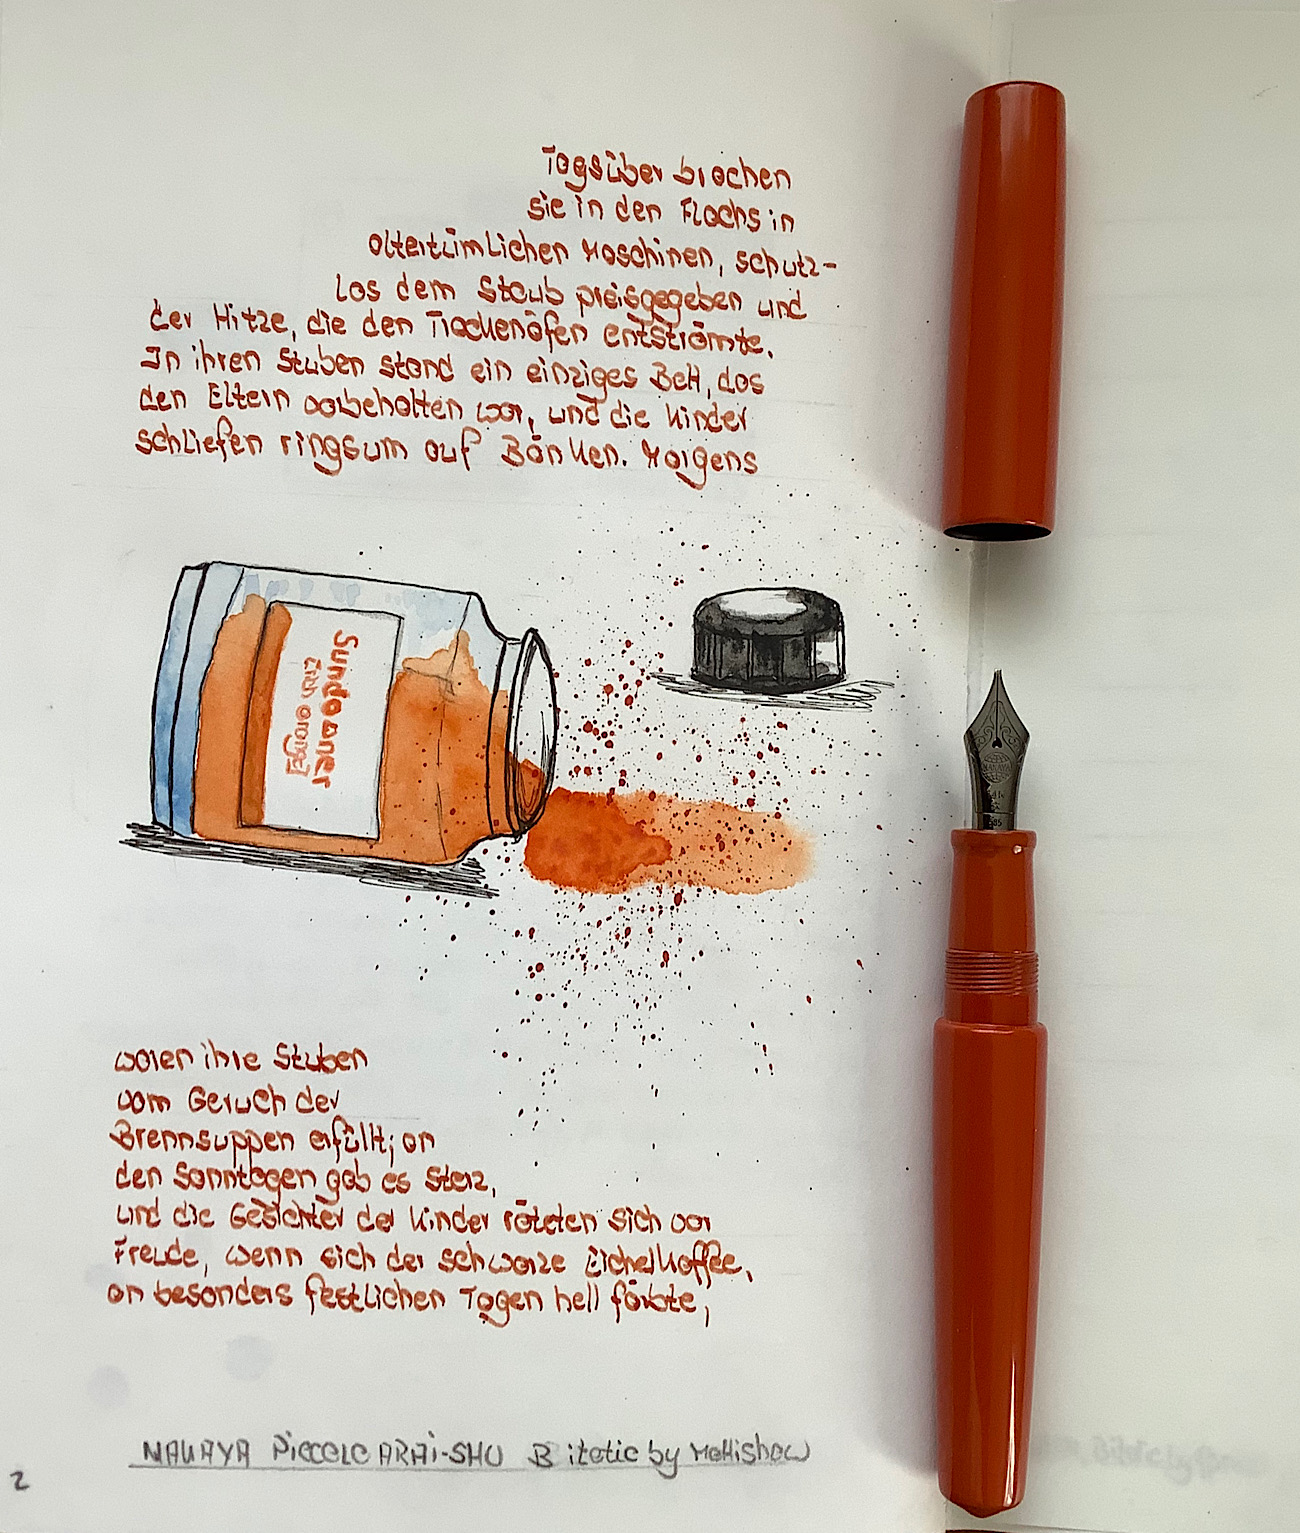 Tagsüber brachen
sie in den Flachs in
altertümlichen Maschinen, schutz-
los dem Staub preisgegeben und
der Hitze, die den Trockenöfen entströmte.
In ihren Stuben stand ein einziges Bett, das
den Eltern vorbehalten war, und die Kinder
schliefen ringsum auf Bänken. Morgens
Sundowner
waren ihre Stuben
vom Geruch der
Brennsuppen erfüllt; an
den Sonntagen gab es Sterz,
und die Gesichter der Kinder röteten sich vor
Freude, wenn sich der schwarze Eichelkaffee,
an besonders festlichen Tagen hell färbte,
NAKAYA Piccolo ARAI-SHU B italic by Mottishaw
2